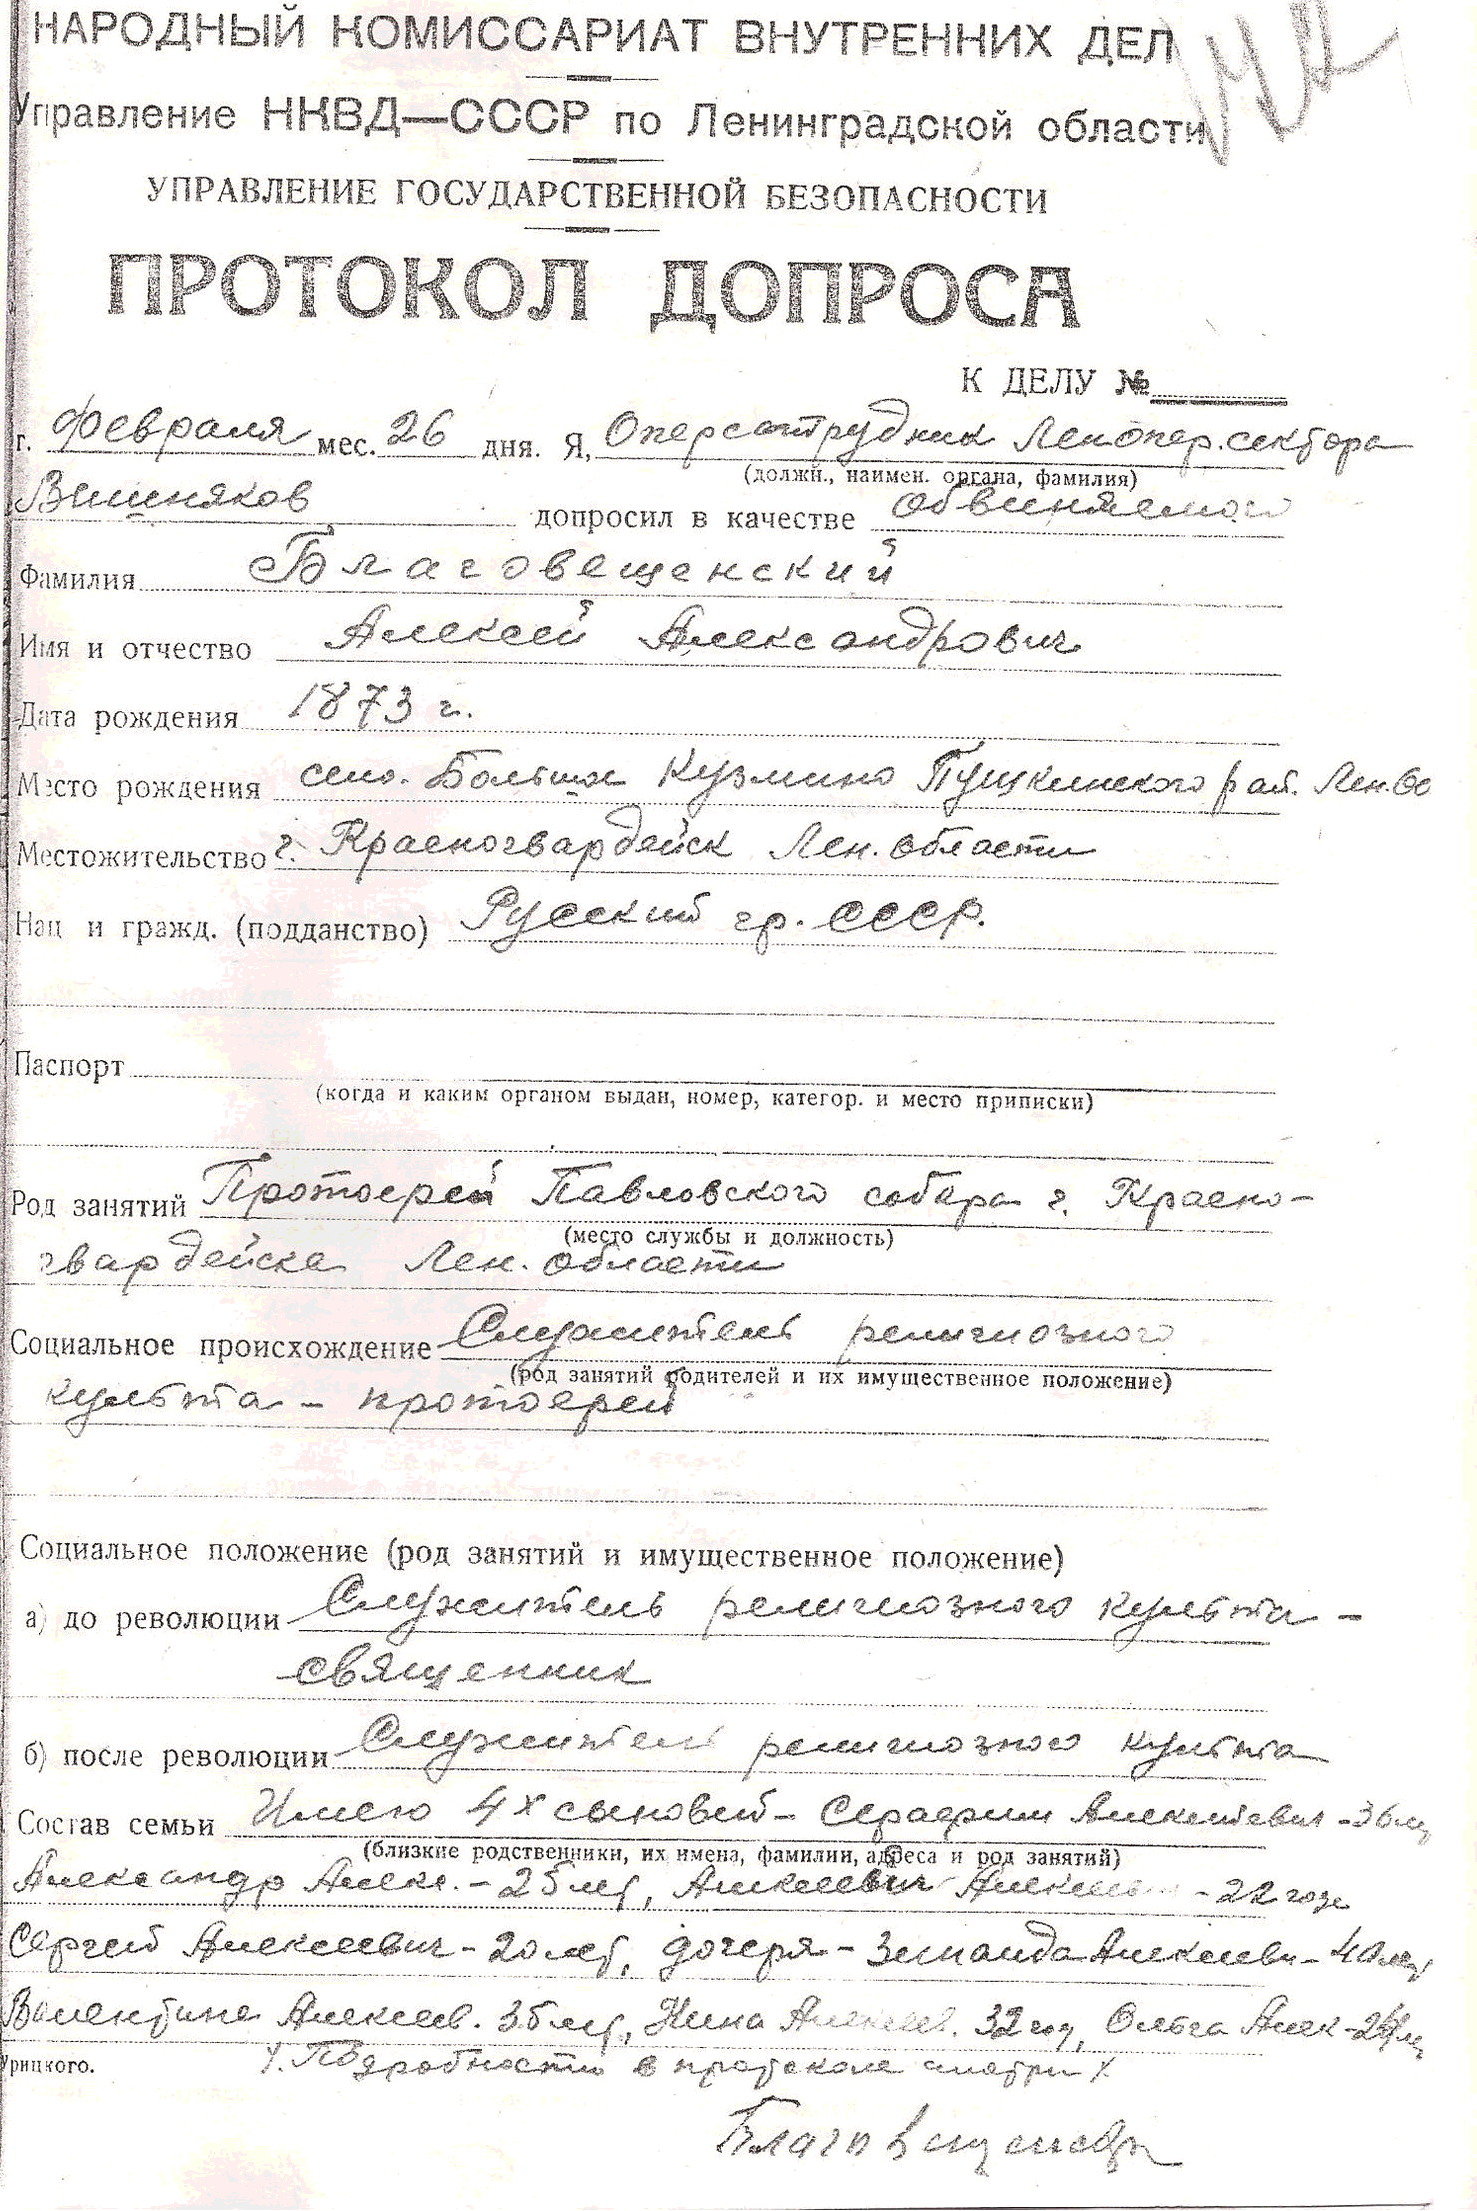 НАРОДНЫЙ КОМИССАРИАТ ВНУТРЕННИХ ДЕЛ
Управление НКВД—СССР по Ленинградской области
УПРАВЛЕНИЕ ГОСУДАРСТВЕННОЙ БЕЗОПАСНОСТИ
ПРОТОКОЛ ДОПРОСА
К ДЕЛУ №
г. Февраля мес. 26 дня. Я, Оперсотрудник Леноперсектора
(должн., наимен. органа, фамилия)
Вишняков допросил в качестве обвиняемого
Фамилия Благовещенский
Имя и отчество Алексей Александрович
Дата рождения 1873 г.
Место рождения село. Большое Кузмино Пушкинского рай. Лен. об
Местожительство г. Красногвардейск Лен. области
Нац и гражд. (подданство) Русский гр. СССР.
Паспорт
(когда и каким органом выдан, номер, категор. и место приписки)
Род занятий Протоерей Павловского собора г. Красно-
(место службы и должность)
гвардейска Лен. области
Социальное происхождение Служитель религиозного
(род занятий родителей и их имущественное положение)
культа - протоерей
Социальное положение (род занятий и имущественное положение)
а) до революции Служитель религиозного культа -
священник
б) после революции Служитель религиозного культа
Состав семьи Имею 4х сыновей - Серафим Алексеевич - 36 лет
(близкие родственники, их имена, фамилии, адреса и род занятий)
Александр Алекс. - 25 лет, Алексеевич - 22 года
Сергей Алексеевич - 20 лет, дочеря - Зинаида Алексеевн - 40 лет
Валентина Алексеев. 35 лет, Нина Алексеев. 32 год, Ольга Алек -
Урицкого. Подробности в протоколе
Благовещенский